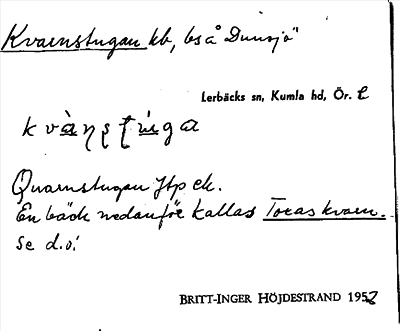 Kvarnstugan kb, bs å Dunsjö
Lerbäcks sn, Kumla hd, Ör. l
Quarnstugan Jtp ek.
En bäck nedanför kallas Toras kvarn.
Se d.o.
BRITT-INGER HÖJDESTRAND 1952